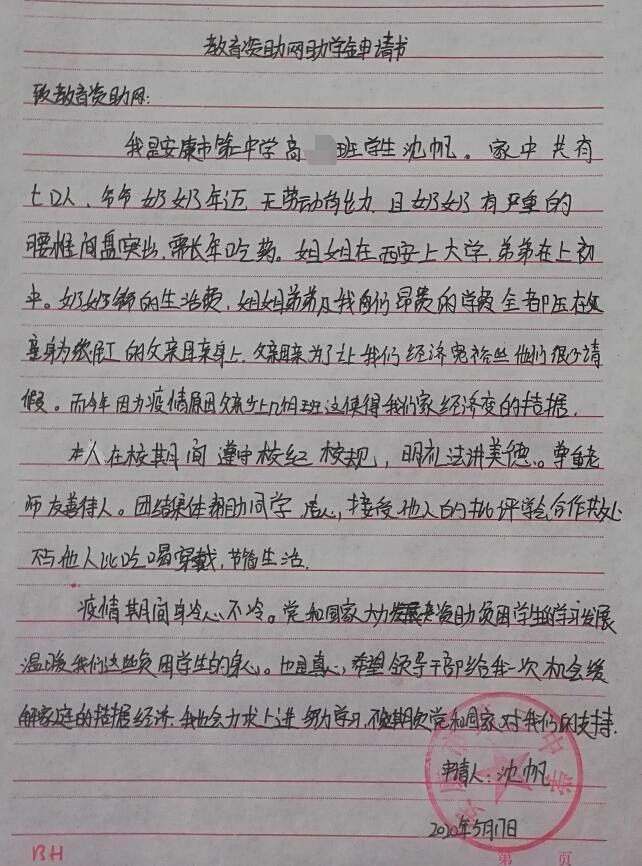 教育资助网助学金申请书
致教育资助网:
我是安康市第二中学高 班学生沈帆。家中共有
七口人、爷爷奶奶年迈无劳动能力,且奶奶有严重的
腰椎间盘突出,需长年吃药。姐姐在西安上大学,弟弟在上初
中。奶奶爷的生活费,姐姐弟弟及我们昂贵的学费全都压在
身为农民工的父亲母亲身上,父亲母亲为了让我们经济宽裕些他们很少请
假。而今年因为疫情原因父亲少上几个月班这使得我们家经济变的拮据.
本人在校期间遵守校纪校规,明礼法讲美德。尊重老
师友善待人。团结集体帮助同学,虚心接受他人的批评学会合作共处
不与他人比吃喝穿戴,节省生活.
疫情期间身冷心不冷。党和国家大力发展来资助贫困学生的学习发展
温暖我们这些贫困学生的身心。也是真心希望领导干部给我一次机会缓
解家庭的拮据经济.我也会力求上进努力学习,不负党和国家对我们的支持.
申请人:沈帆
2020年5月17日
BH
第 页